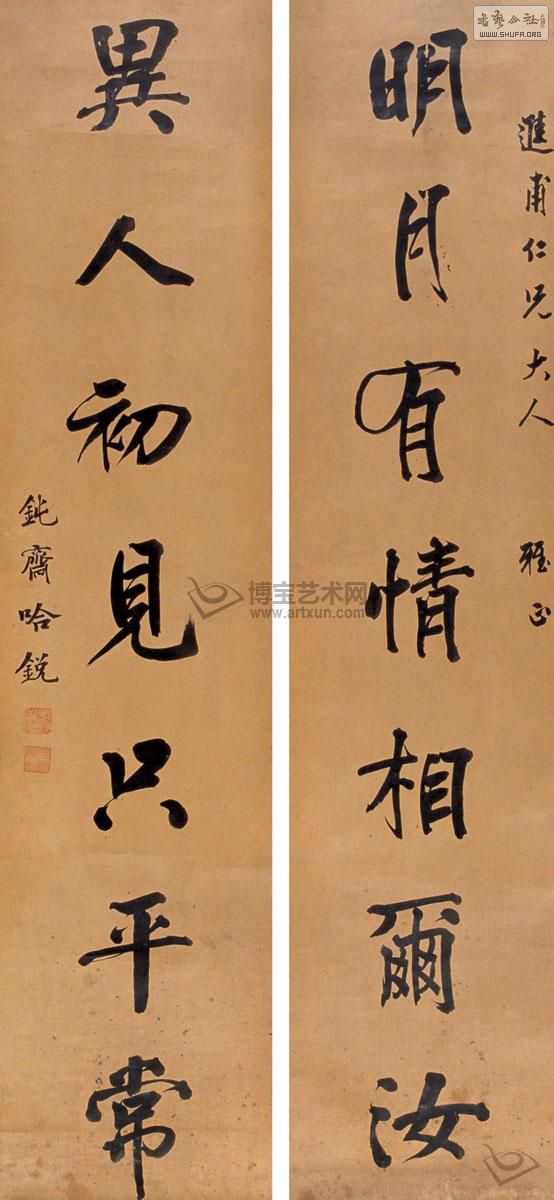 書藝公社
WWW.SHUFA.ORG
進甫仁兄大人 雅正
明月有情相爾汝
異人初見只平常
鈍齋哈銳
博宝艺术网
www.artxun.com